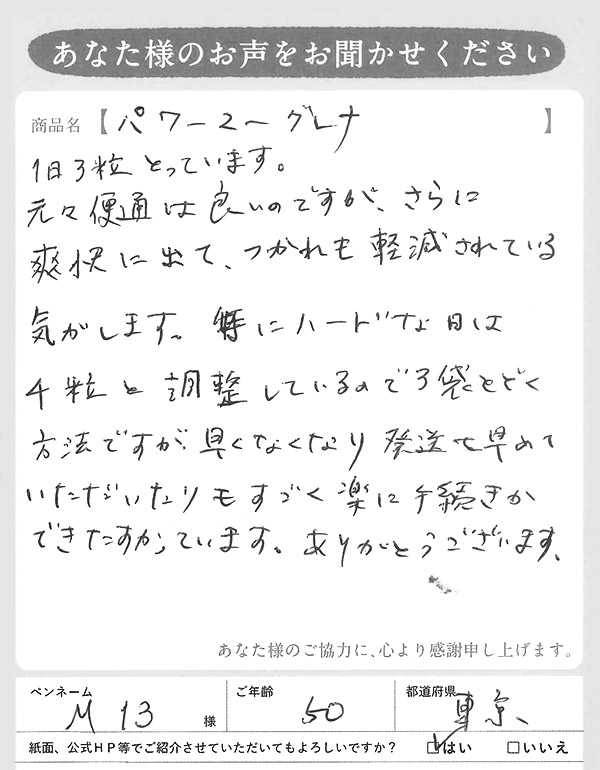 あなた様のお声をお聞かせください
商品名【パワーユーグレナ】
1日3粒とっています。
元々便通は良いのですが、さらに
爽快に出て、つかれも軽減されている
気がします。特にハードな日は
4粒と調整しているので3袋とどく
方法ですが、早くなくなり発送も早めて
いただいたりもすごく楽に手続きか
できたすかっています。ありがとうございます、
あなた様のご協力に、心より感謝申し上げます。
ペンネーム M13 様 ご年齢 50 都道府県 東京、
紙面、公式HP等でご紹介させていただいてもよろしいですか? □はい □いいえ